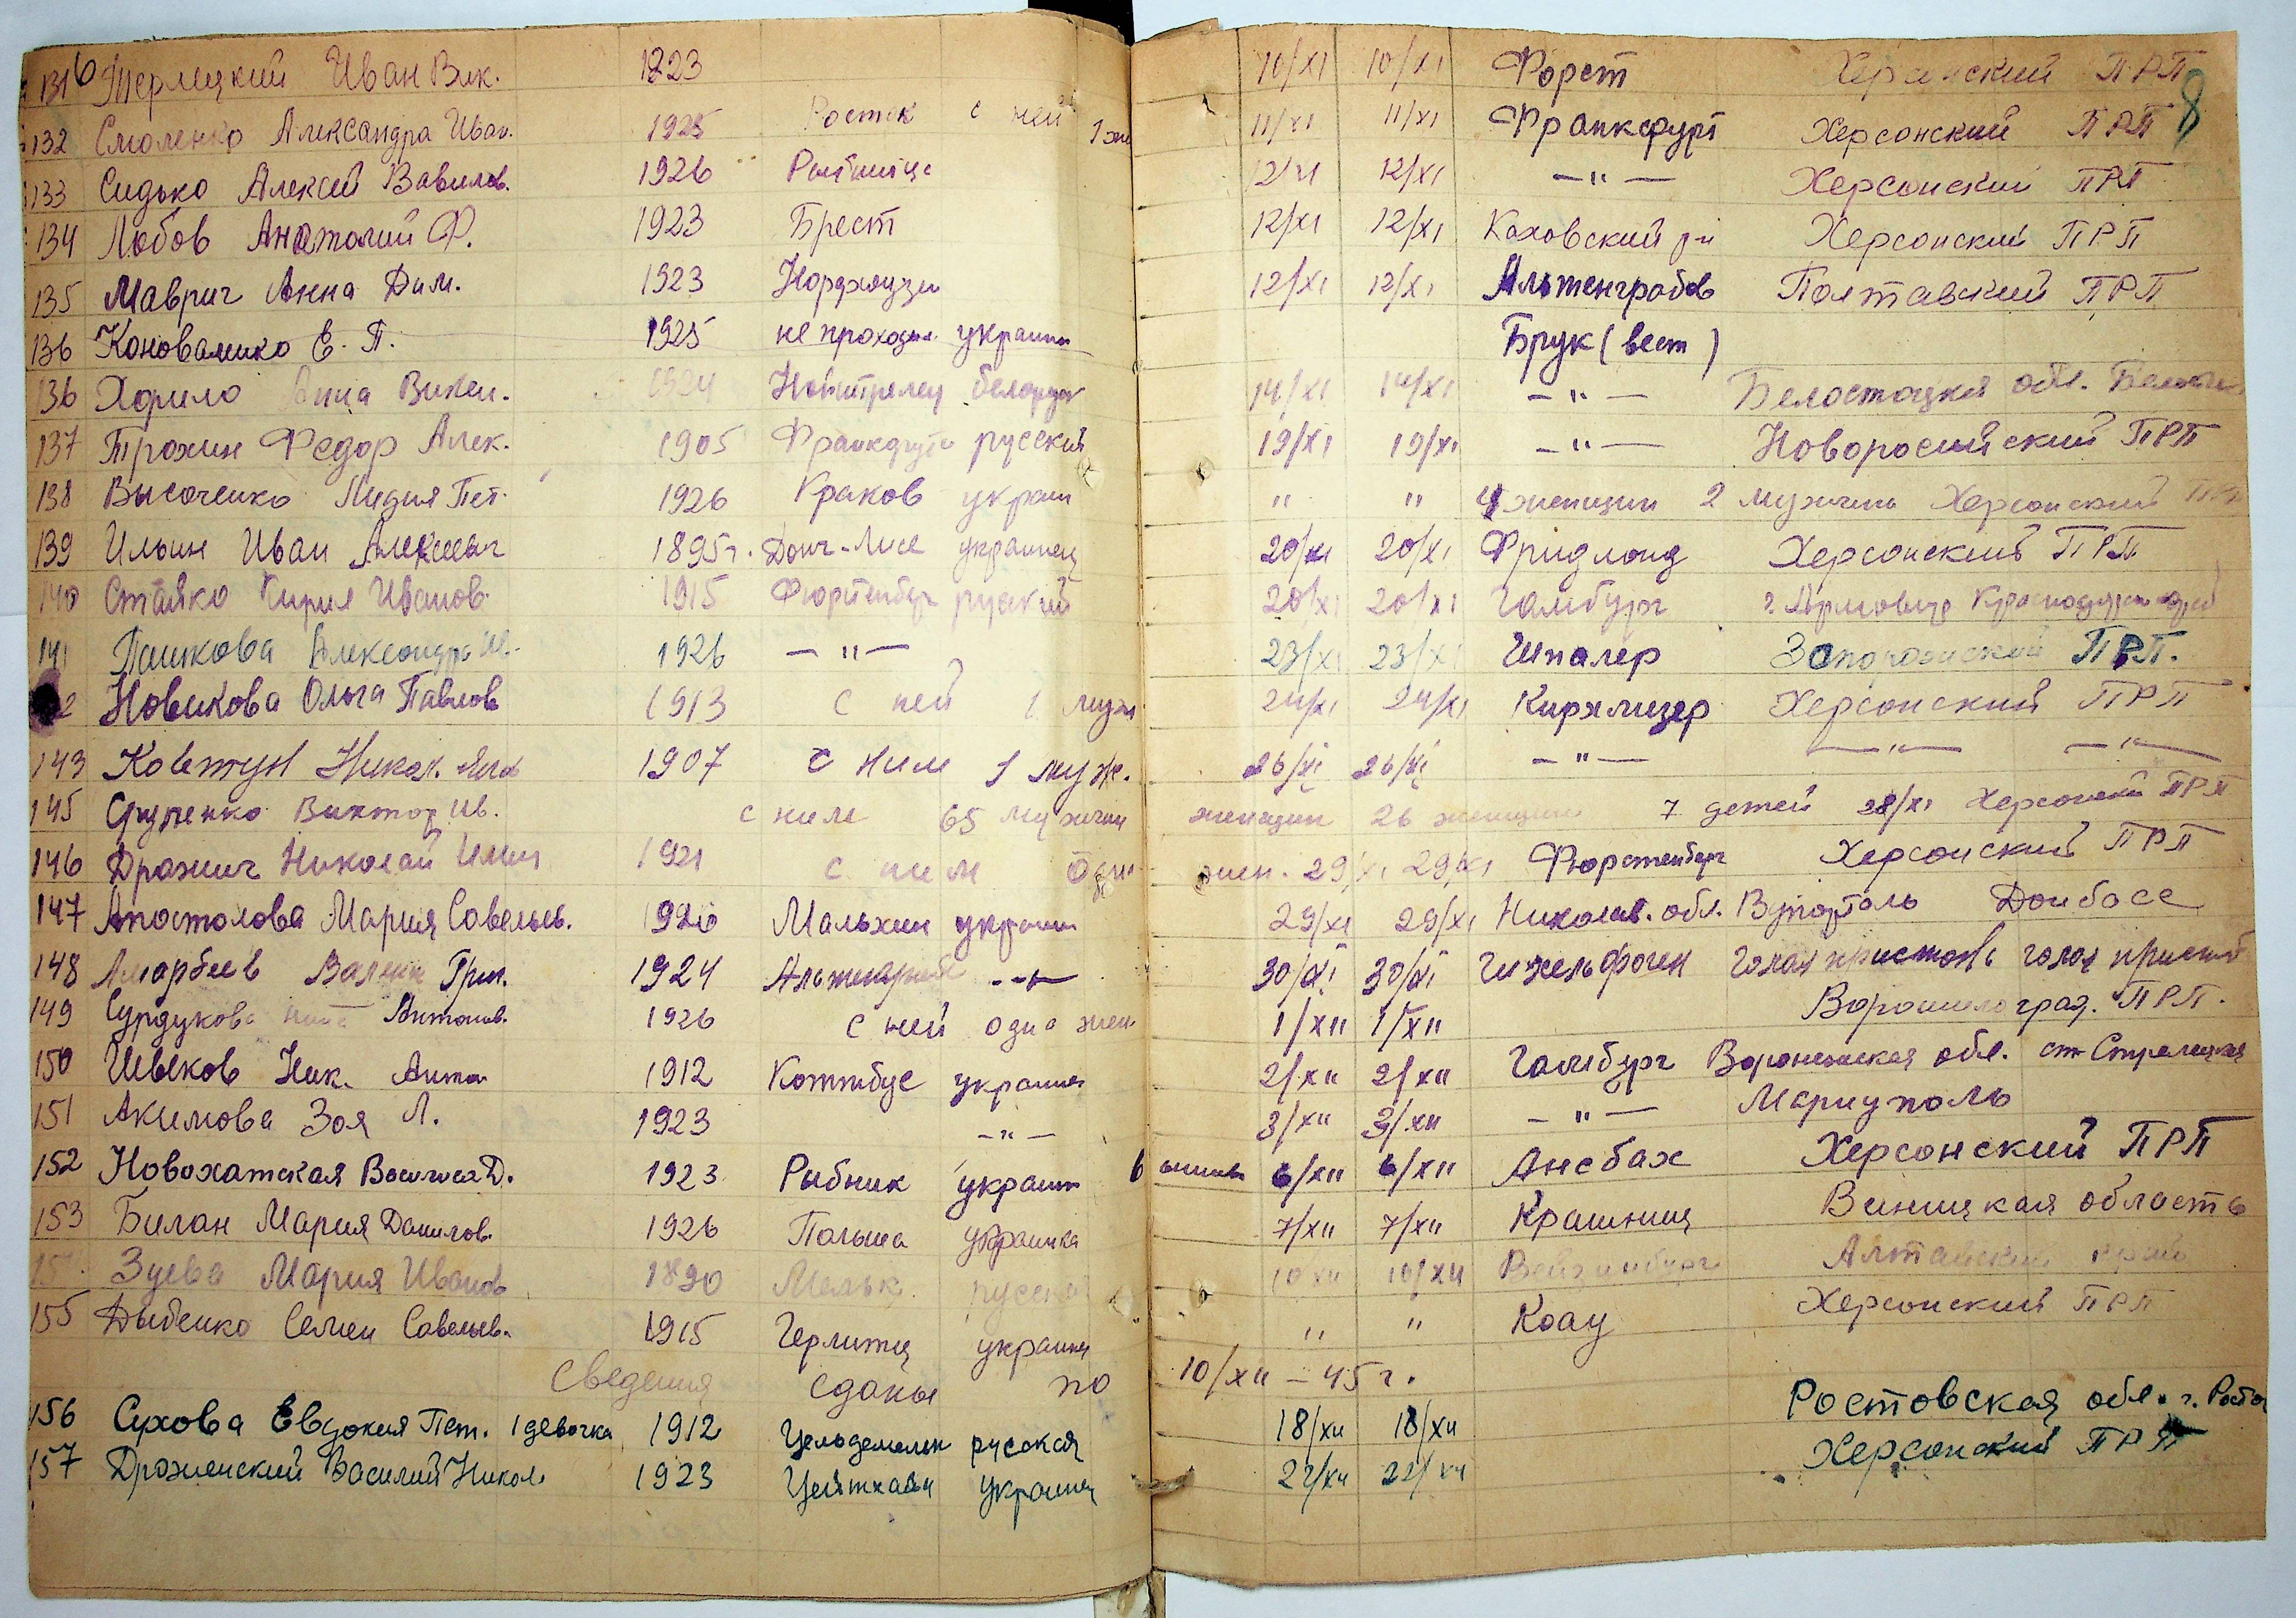 1316 Терлецкий Иван Вик. 1923 10/XI 10/XI Форст Херсонский ПРП
8
132 Смоленко Александра Иван. 1925 Росток с ней 1 жен 11/XI 11/XI Франкфурт Херсонский ПРП
133 Сидько Алексей Вавилов. 1926 12/XI 12/XI —"— Херсонский ПРП
134 Лобов Анатолий Ф. 1923 Брест 12/XI 12/XI Каховский р-н Херсонский ПРП
135 Маврич Анна Дим. 1923 Нордхаузен 12/XI 12/XI Альтенграбов Полтавский ПРП
136 Коноваленко Е. П. 1925 не проходил украин Брук (вест)
136 Хорило Анна Викен. 1924 белорус 14/XI 14/XI —"— Белостоцкая обл.
137 Трохин Федор Алек. 1905 Франкфурт русский 19/XI 19/XI —"— Новоросийский ПРП
138 Высоченко Лидия Пет. 1926 Краков украин " " 4 женщин 2 мужчин Херсонский ПРП
139 Ильин Иван Алексеевич 1895 г. украинец 20/XI 20/XI Фридлонд Херсонский ПРП
140 Стайко Кирил Иванов. 1915 Фюрстенберг русский 20/XI 20/XI Гамбург г. Армовир
141 Пашкова Александра Ив. 1926 —"— 23/XI 23/XI Шпалер Запорожский ПРП.
2 Новикова Ольга Павлов 1913 с ней 1 муж 24/XI 24/XI Кирхмизер Херсонский ПРП
143 Ковтун Никол. 1907 с ним 1 муж. 26/XI 26/XI —"— —"— —"—
145 Виктор Ив. с ним 65 мужчин женщин 26 женщин 7 детей 28/XI Херсонский ПРП
146 Дражич Николай Ильич 1921 с ним один жен. 29/XI 29/XI Фюрстенберг Херсонский ПРП
147 Апостолова Мария Савельев. 1926 Мальхин украин 29/XI 29/XI Николаев. обл. Вупорталь Донбасс
148 Вален Григ. 1924 —"— 30/XI 30/XI
149 Сурдукова Антонов. 1926 с ней одна жен 1/XII 1/XII Ворошилоград. ПРП.
150 Швеков Ник. Антон 1912 Коттбус украинец 2/XII 2/XII Гамбург Воронежская обл. ст Стрелецкая
151 Акимова Зоя Л. 1923 —"— 3/XII 3/XII —"— Мариуполь
152 Новохатская Василиса Д. 1923 Рыбник украин 6 6/XII 6/XII Ансбах Херсонский ПРП
153 Билан Мария Данилов. 1926 Польша украинка 7/XII 7/XII Крашниц Виницкая область
15 Зуева Мария Иванов 1890 Мальх. русская 10/XII 10/XII Алтайский край
155 Дыбенко Семен Савельев. 1915 Герлитц украинец " " Коау Херсонский ПРП
Сведения сданы по 10/XII – 45 г.
156 Сухова Евдокия Пет. 1 девочка 1912 русская 18/XII 18/XII Ростовская обл. г. Ростов
157 Дроженский Василий Никол. 1923 Цейтхайн украинец 22/XII 22/XII Херсонский ПРП